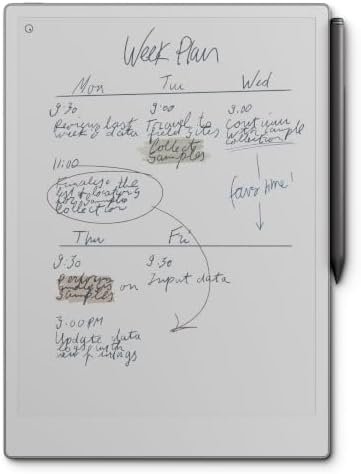 Week Plan
Mon Tue Wed
9:30
Review last
week's data
11:00
Finalise the
list of locations
for sample
collection
9:00
Travel to
field sites
Collect
samples
9.00
Continue
with sample
collection
Thu Fri
9:30
Perform
analysis on
samples
3:00PM
Update data
logs with
new findings
9:30
Input data